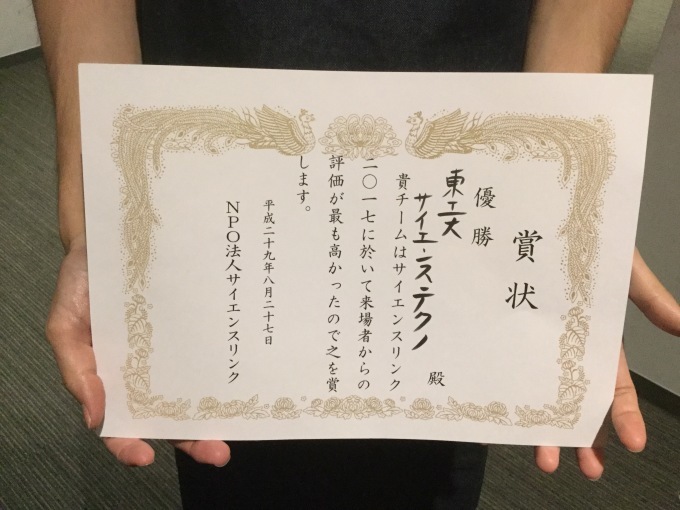 賞状
優勝
東工大
サイエンステクノ 殿
貴チームはサイエンスリンク
二〇一七に於いて来場者からの
評価が最も高かったので之を賞
します。
平成二十九年八月二十七日
NPO法人サイエンスリンク